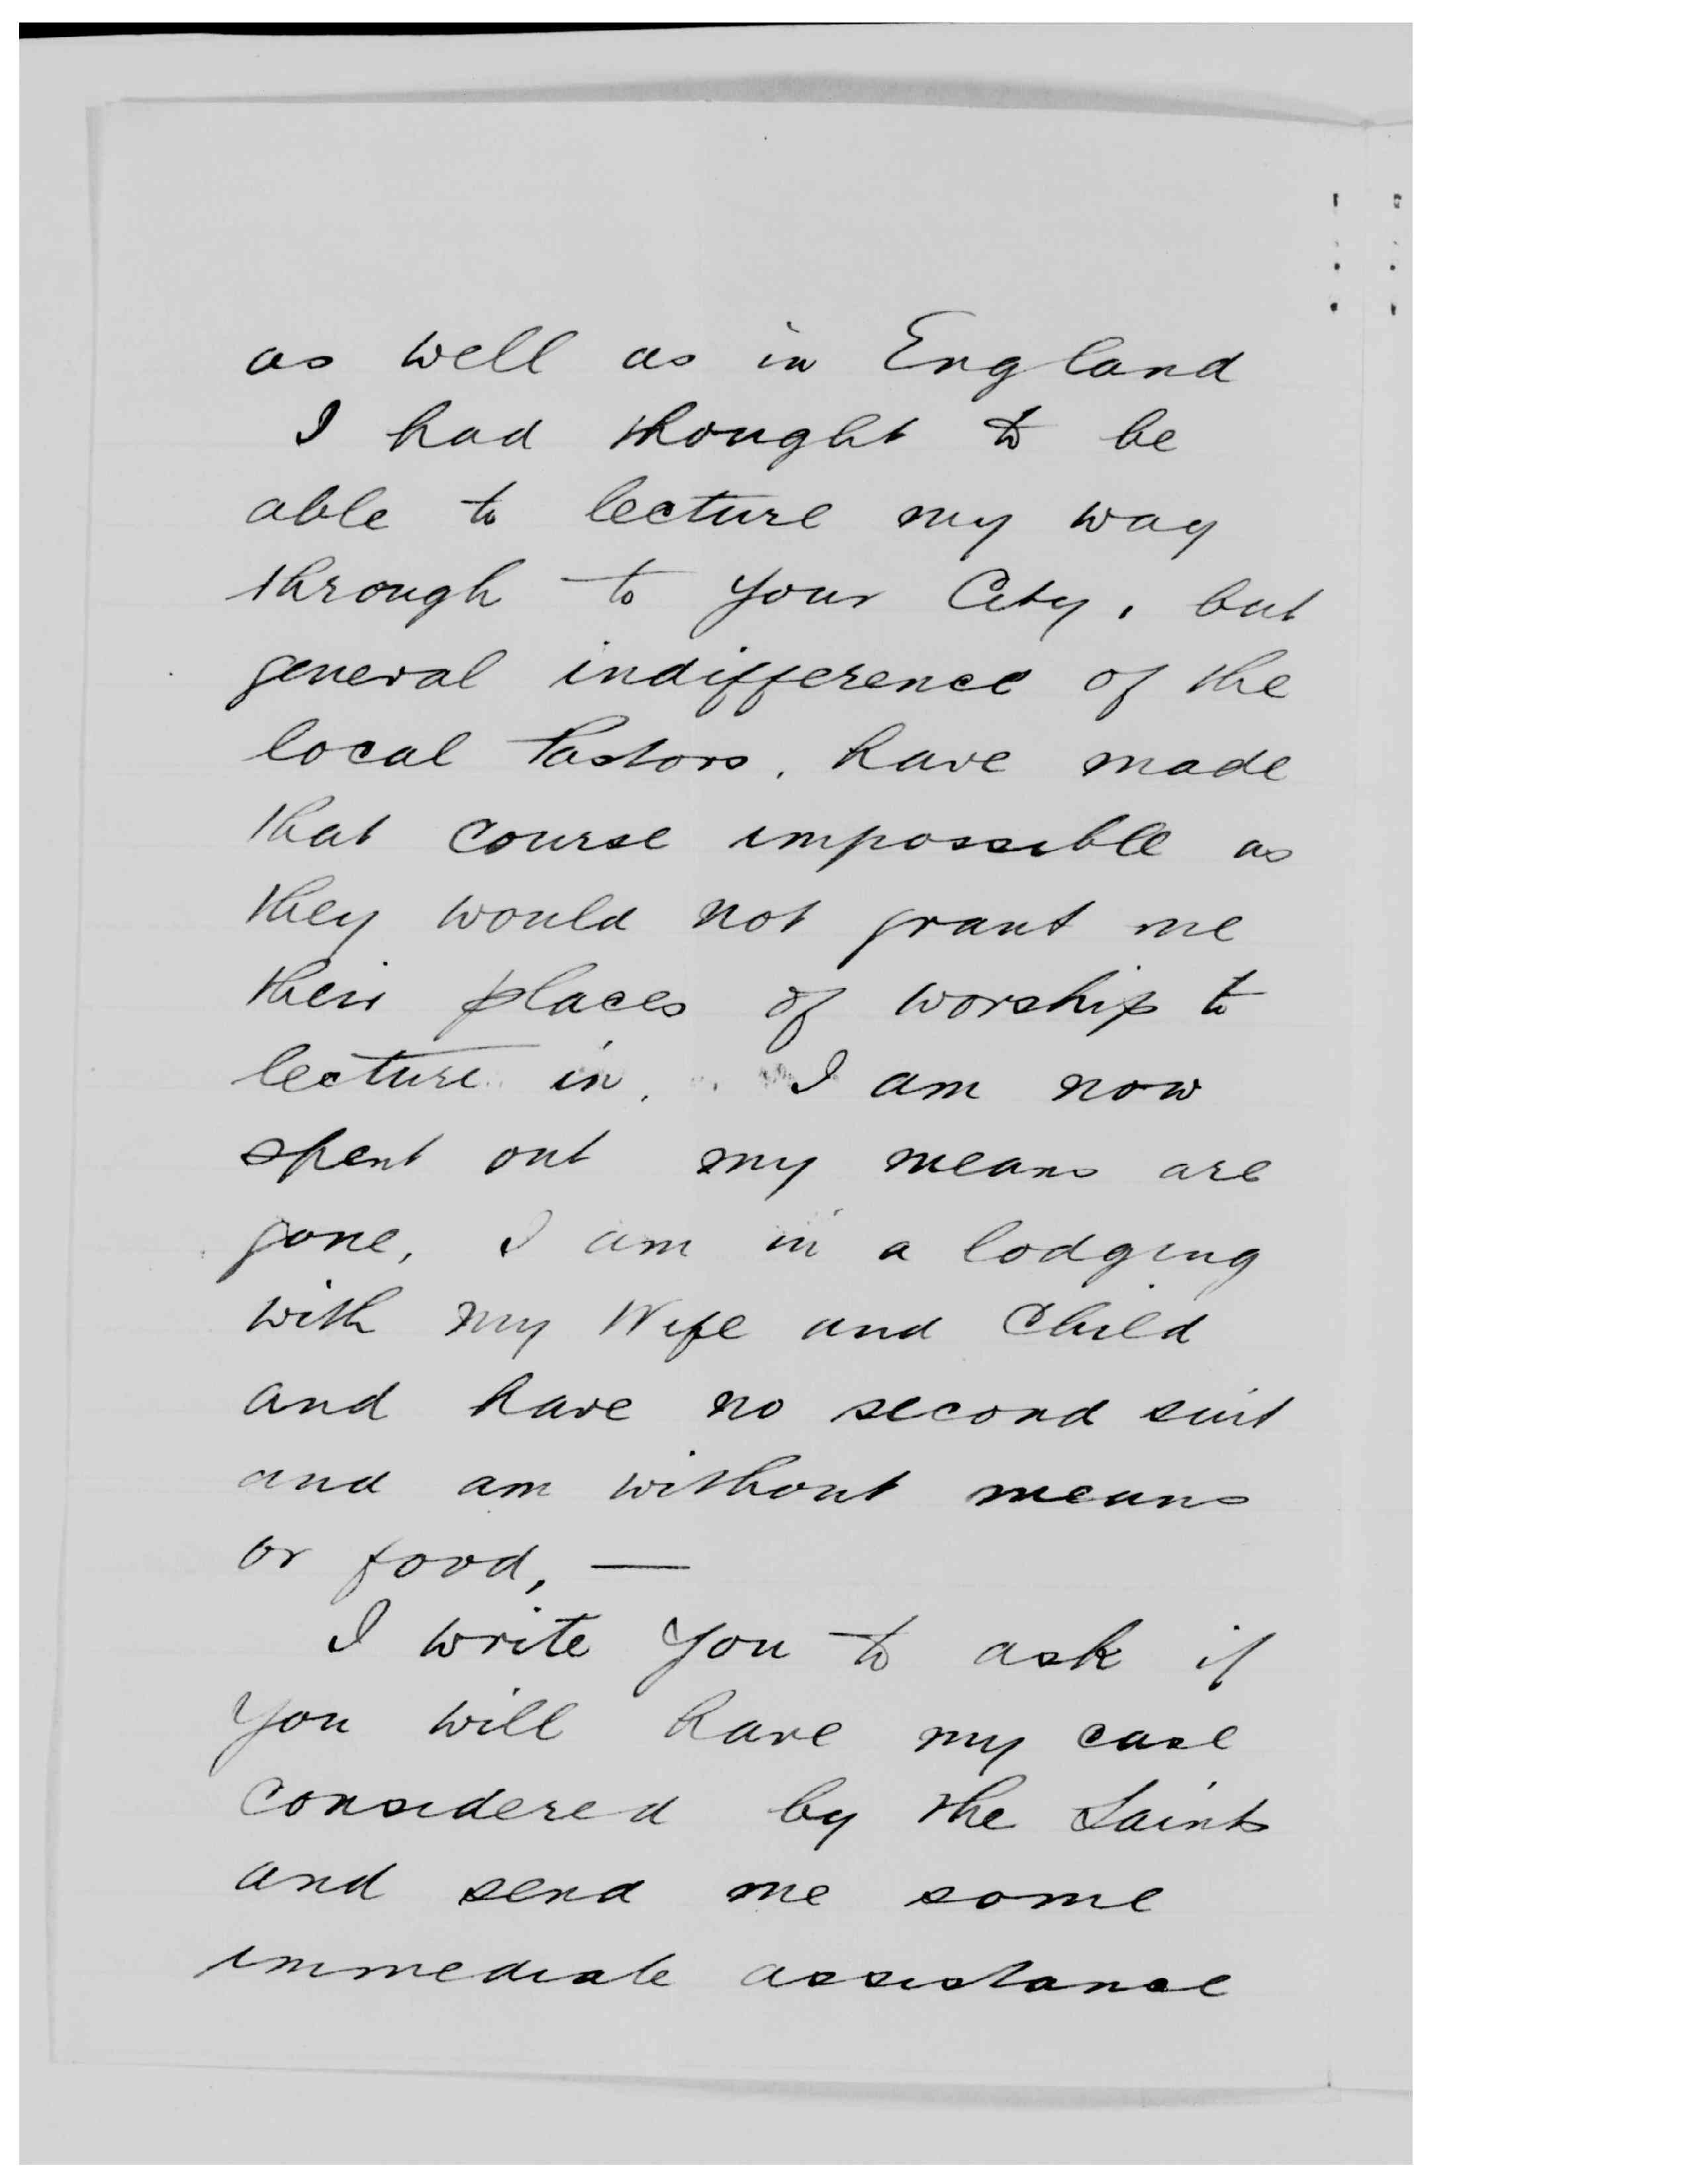 as well as in England
I had thought to be
able to lecture my way
through to your City, but
general indifference of the
local Pastors, have made
that course impossible as
they would not grant me
their places of worship to
lecture in. I am now
spent out my means are
gone, I am in a lodging
with my Wife and Child
and have no second suit
and am without means
or food, —
I write you to ask if
you will have my case
considered by the Saints
and send me some
immediate assistance